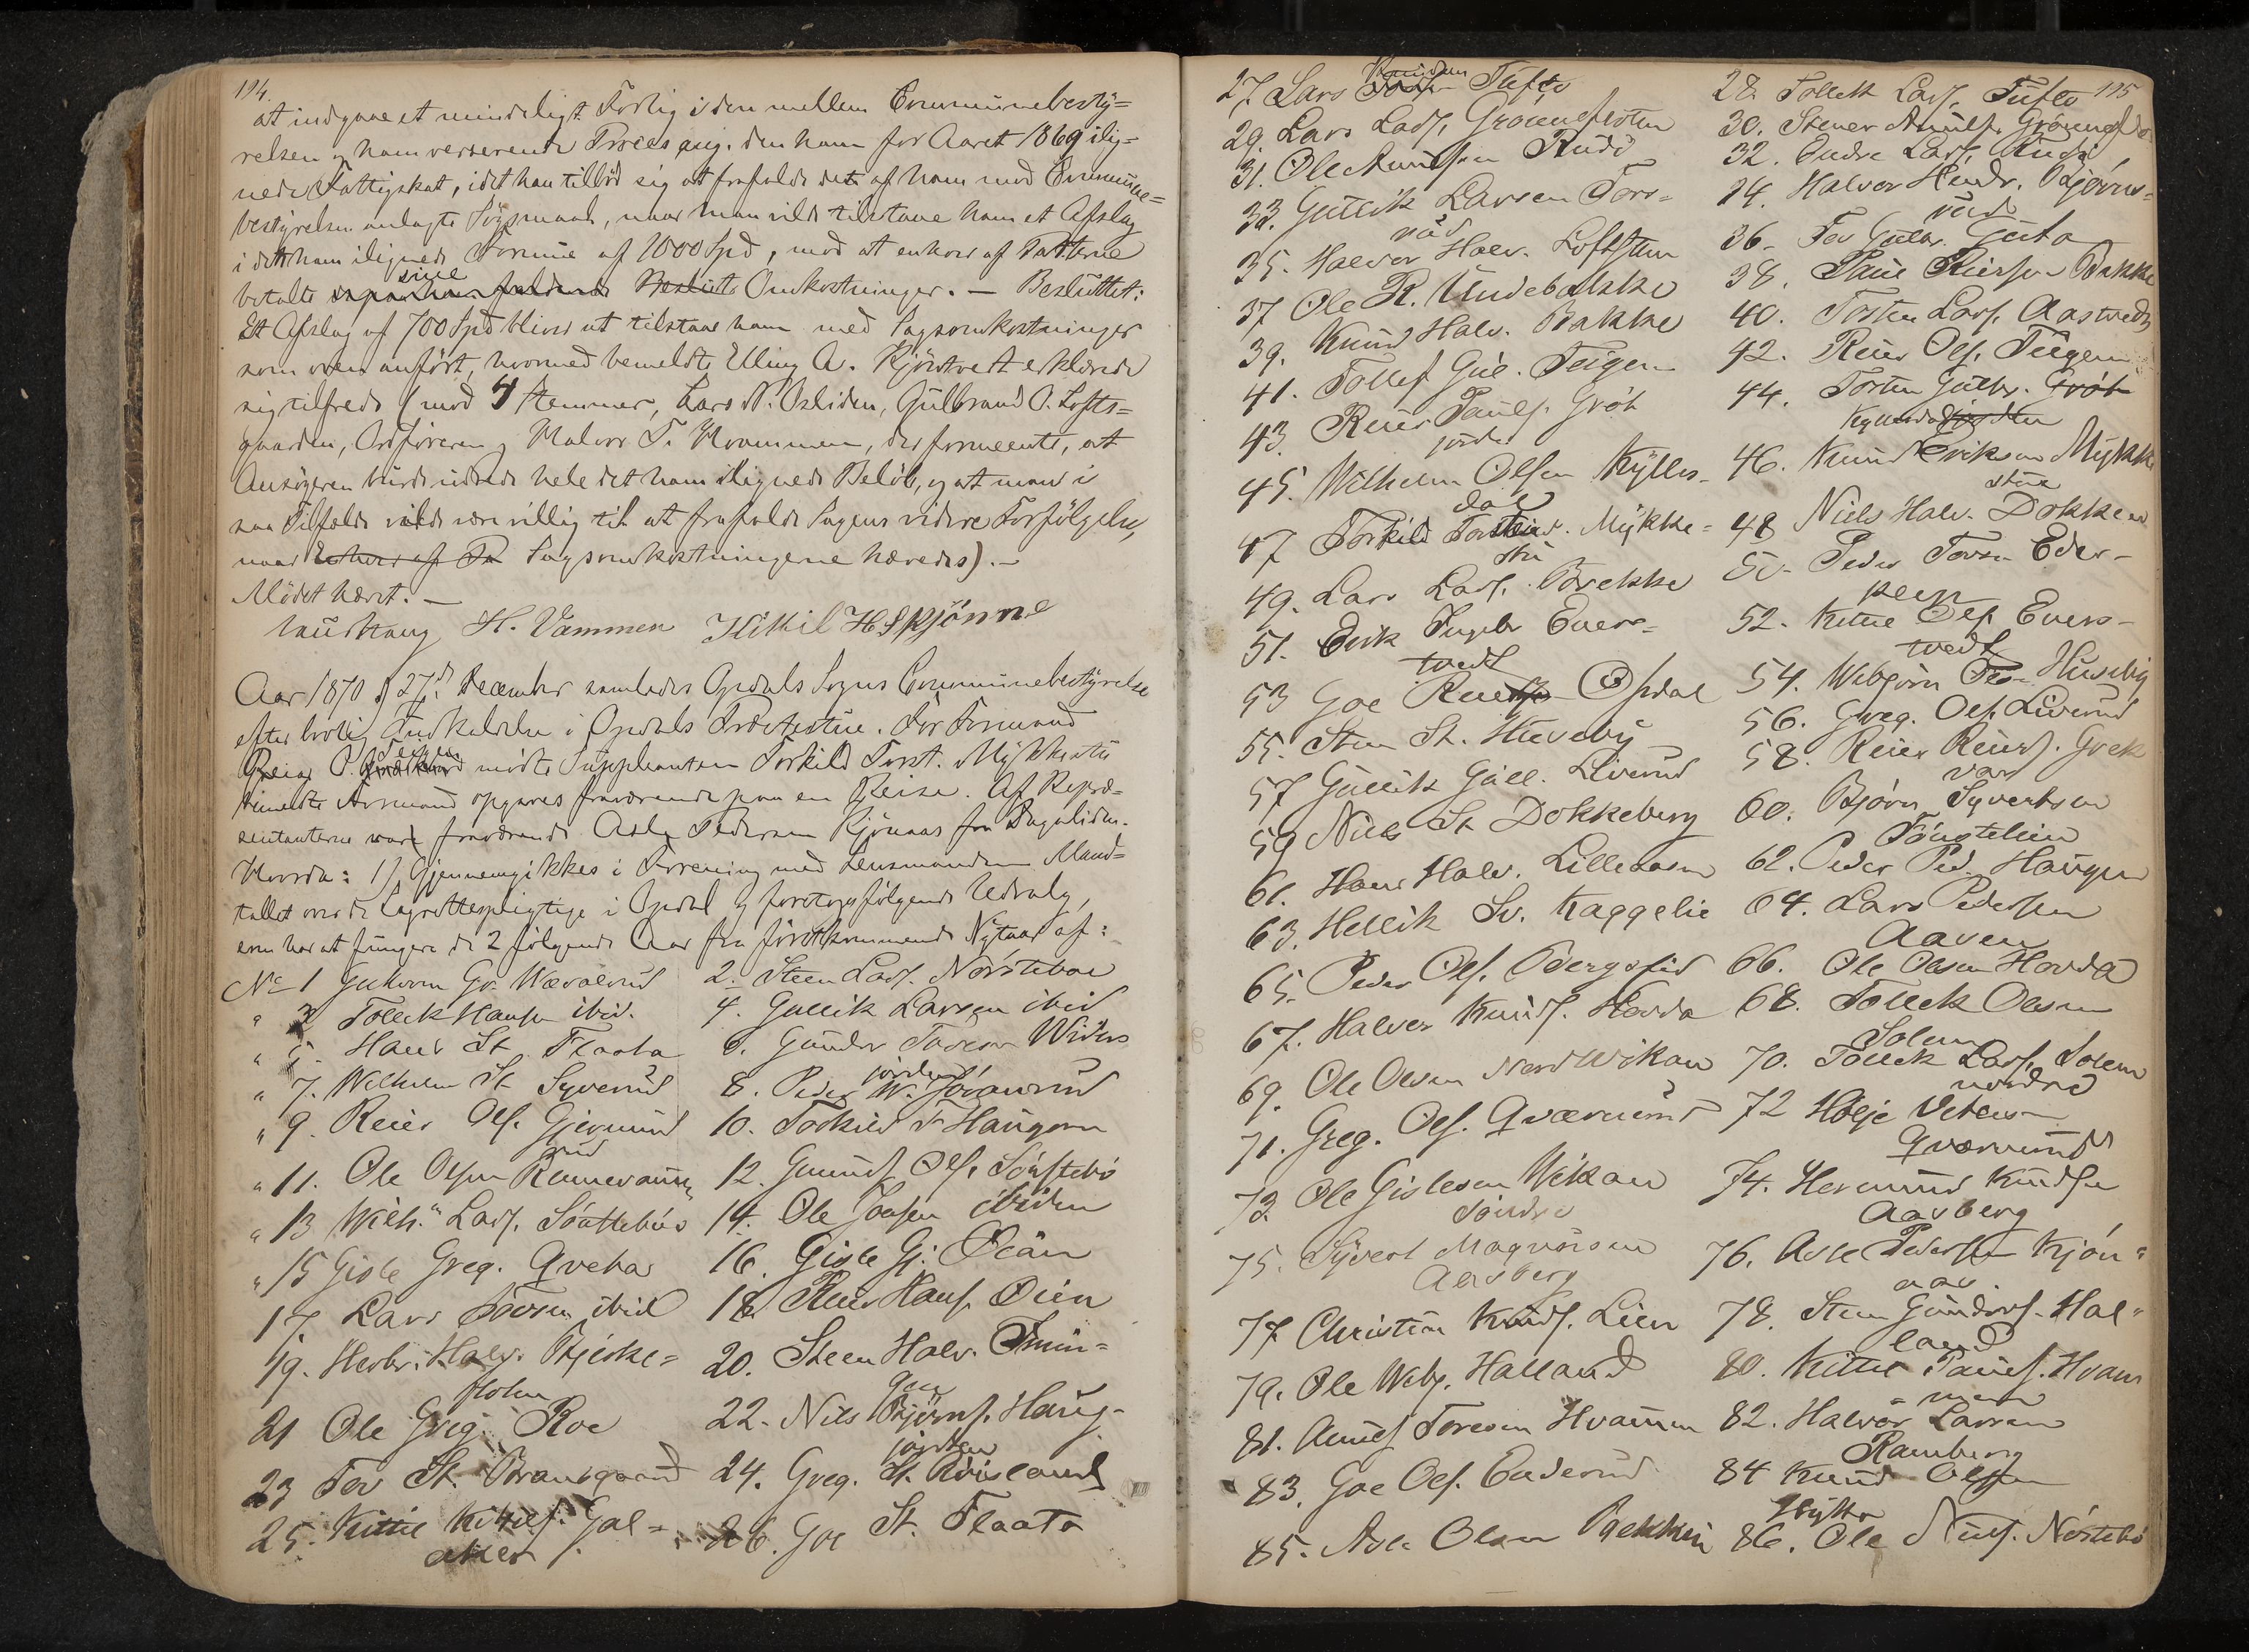 194.
at indgaae et mindeligt Forlig i den mellem Communebesty=
relsen og ham verserende Proces ang. den ham for Aaret 1869 ilig=
nede Fattigskat, idet han tilbød sig at frafalde det af ham mod Commune=
bestyrelsen anlagte Søgsmaal, naar man vilde tilstaae ham et Afslag
i den ham ilignede Formue af 1000 Spd, mod at enhver af Parterne
betalte sine Omkostninger. — Besluttet:
Et Afslag af 700 Spd bliver at tilstaae ham med Sagsomkostninger
som oven anført, hvormed bemeldte Elling A. Kjøntvedt erklærede
sig tilfreds (mod 4 Stemmer, Lars N. Usliden, Gulbrand O. Lofts=
gaarden, Ordføreren og Halvor T. Hvammen, der formeente, at
Ansøgeren burde udrede hele det ham ilignede Beløb, og at man i
saa Tilfælde vilde være villig til at frafalde Sagens videre Forfølgelse,
naar Enhver af Pa Sagsomkostningerne hævedes). —
Mødet hævet. —
H. Vammen Kittil H Skjönne
Aar 1870 d. 27de December samledes Opdals Sogns Communebestyrelse
efter lovlig Indkaldelse i Opdals Præstestue. For Formand
Reier P. Teigen mødte Suppleanten Torkild Torst. Mykkestu
bemeldte Formand opgaves fraværende paa en Reise. Af Repræ=
sentanterne var fraværende Asle Pedersen Kjønaas fra Dagaliden.
Hvorda: 1) Gjennemgikkes i Forening med Lensmanden Mand=
tallet over de Lagrettespligtige i Opdal og foretoges følgende Udvalg,
som har at fungere de 2 følgende Aar fra førstkommende Nytaar af:
No 1 Guttorm Gr. Wæraasrud 2. Steen Lars. Nørstebøe
" 3 Tollek Hansen ibid. 4. Gullik Larsen ibid
" 5. Hans St. Flaata 6. Gunder Tovsen Widers
jorden
" 7. Wilhelm St. Syverud 8. Peder W. Joransrud
" 9. Reier Ols. Gjermund 10. Torkild T. Haugen
rud
" 11. Ole Olsen 12. Gunulf Ols. Sønstebø
" 13 Wilh. Lars. Søættebøe 14. Ole Jonsen ibiden
" 15 Gisle Greg. Qveha 16. Gisle Gj. Øien
17. Lars Tovsen ibid 18. Reier Hans. Øien
19. Herbr. Halv. Bjerke= 20. Steen Halv. Tmin=
floten gen
21 Ole Greg. Roe 22. Nils Bjørns. Haug-
jorden
23 Tov St. Bransgaard 24. Greg. St. Røisland
25. Kittil Kittils. Gal= 26. Goe St. Flaata
aker
195
27. Lars Tufto 28. Tollek Lars. Tufto
29. Lars Lars. Grønnefloten 30. Stener Amuls. Grønnefl
31. Ole Amulsen Rudi 32. Endre Lars. Rudi
33. Gullik Larsen Tors= 34. Halvor Hendr. Bjørns=
rud rud
35. Halvor Halv. Loftstuen 36. Tov Gulbr. Guta
37 Ole R. Undebakke 38. Paul Reiersen Bakke
39. Knud Halv. Bakke 40. Torsten Lars. Aastvedt
41. Tollef Gul. Teigen 42. Reier Ols. Teigen
43. Reier Pauls. Grøt 44. Torsten Gulbr. Grøt
jorde
45. Wilhelm Olsen Kylles= 46. Knud Eriksen Mykke
dal stue
47 Torkild Torstens. Mykke= 48 Niels Halv. Dokken
stu
49. Lars Lars. Brekke 50. Peder Tovsen Eder-
peen
51. Erik Ingebr Evers= 52. Kittil Ols. Evers-
tvedt tvedt
53 Goe Opdal 54. Webjørn Huseby
55. Sten St. Huseby 56. Greg. Ols. Liverud
57 Gullik Gull. Liverud 58. Reier Reiers. Grek
var
59 Niels St Dokkeberg 60. Bjørn Syvertsen
Tøngtelien
61. Hans Halv. Lilleaasen 62. Peder Ped. Haugen
63. Hellik Sv. Kaggelie 64. Lars Pedersen
Aaven
65. Peder Ols. Bergslid 66. Ole Olsen Hovda
67. Halvor Knuds. Hovda 68. Tollek Olsen
Solem
69. Ole Olsen Nord Wikan 70. Tollek Lars. Solem
nordre
71. Greg. Ols. Qværnrud 72 Holje
Qværnrud
73. Ole Gislesen Wikan 74. Hermund Knudsen
Søndre Aasberg
75. Syvert Magnusen 76. Asle Pedersen Kjøn=
Aasberg aas
77 Christian Knuds. Lien 78. Sten Gunders. Hal=
land
79. Ole Webj. Halland 80. Kittil Pauls. Hvam
= men
81. Amund Toresen Hvammen 82. Halvor Larsen
Ramberg
83. Goe Ols. Enderud 84 Knud Olsen
Hytta
85. Asle Olsen Bakken 86. Ole Nils. Nørstebø